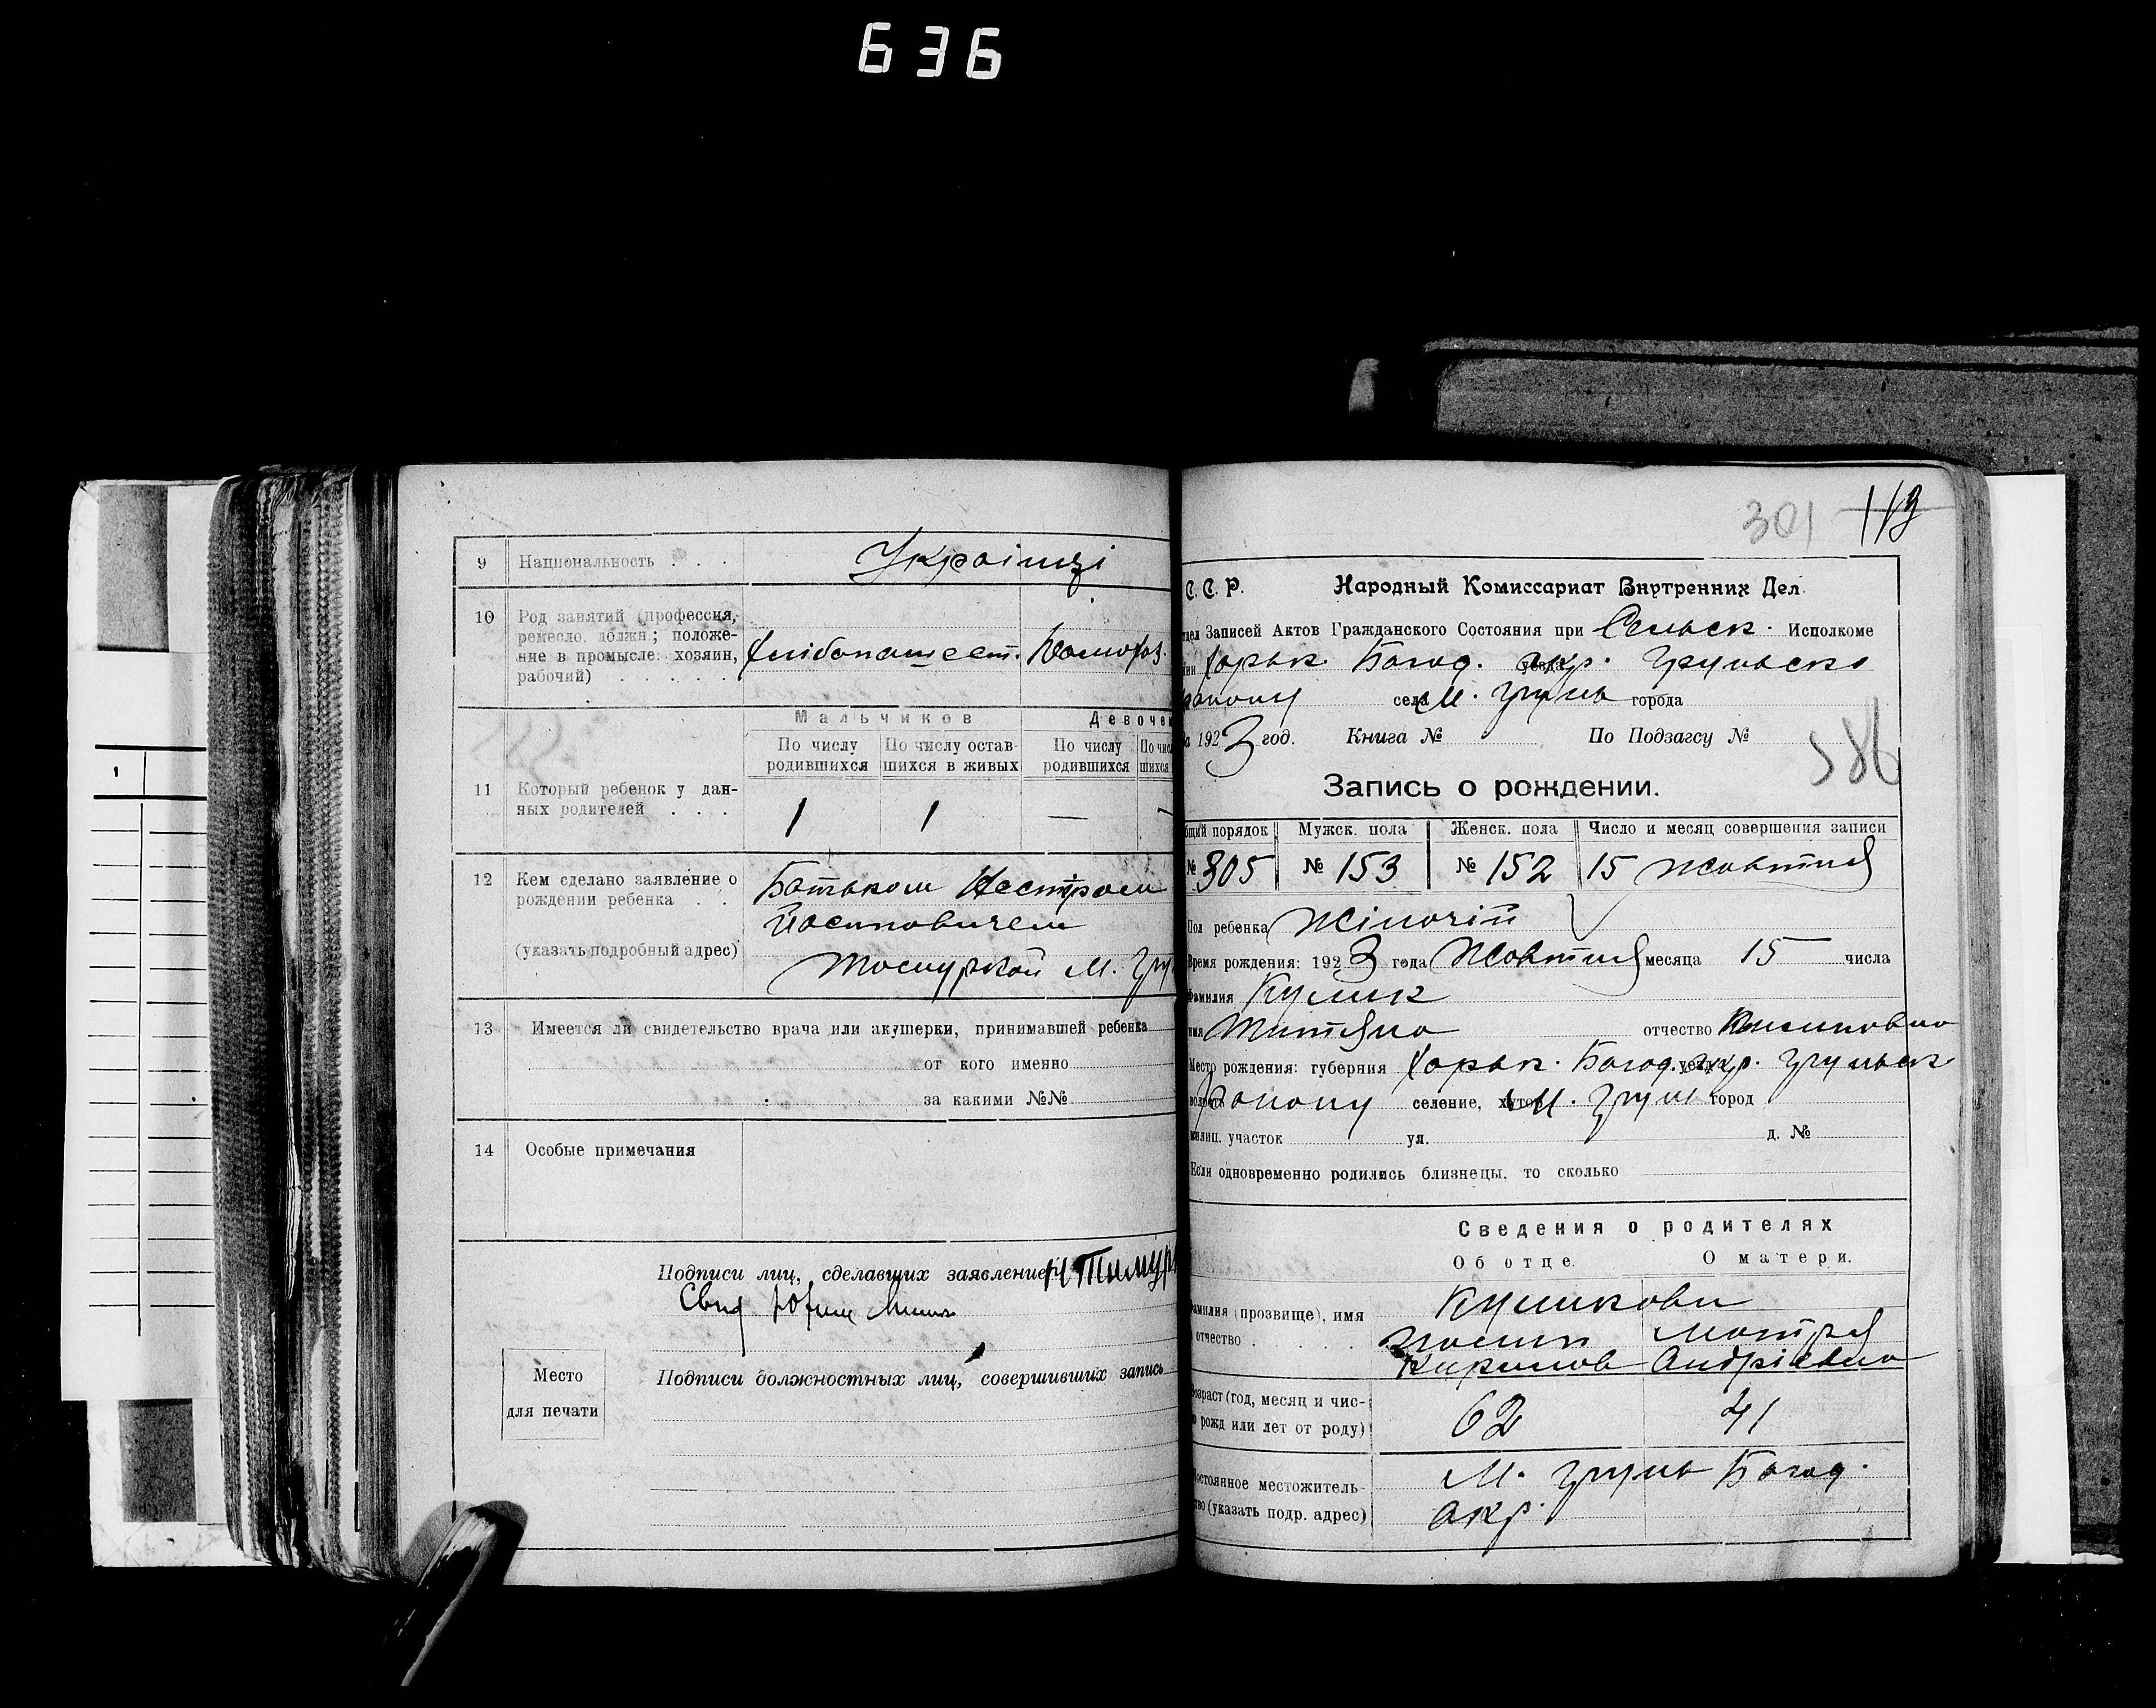 636
9 Национальность . . . Українці
10 Род занятий (профессия,
ремесло, должн.; положе-
ние в промысле: хозяин,
рабочий) . . . . .
Хлібопашест. Домохоз.
11 Который ребенок у дан-
ных родителей . . .
Мальчиков Девоче
По числу родившихся
По числу остав-
шихся в живых
По числу родившихся
1 1 — —
12 Кем сделано заявление о
рождении ребенка . .
(указать подробный адрес)
Батьком Нестром
Йосиповичем
М. Гру
13 Имеется ли свидетельство врача или акушерки, принимавшей ребенка
от кого именно
за какими №№
14 Особые примечания
Подписи лиц, сделавших заявление
Подписи должностных лиц, совершивших запись
Место
для печати
301 113
С. С. Р. Народный Комиссариат Внутренних Дел.
тдел Записей Актов Гражданского Состояния при Сельск. Исполкоме
нии Харьк. Богод. окр. Грунськ
району села М. Грунь города
За 1923 год. Книга № По Подзагсу №
386
Запись о рождении.
бщий порядок Мужск. пола Женск. пола Число и месяц совершения записи
№ 305 № 153 № 152 15 Жовтня
Пол ребенка Жіночій
Время рождения: 1923 года Жовтня месяца 15 числа
Фамилия Кулик
имя Титяна отчество
Место рождения: губерния Харьк. Богод. окр. Грунськ
району селение, хутор М. Грунь город
милиц. участок ул. д. №
Если одновременно родились близнецы, то сколько
Сведения о родителях
Об отце. О матери.
Фамилия (прозвище), имя
отчество . . . . .
Куликови
Мотря
Андріевна
Возраст (год, месяц и чис-
о рожд или лет от роду)
62 41
Постоянное местожитель-
тво (указать подр. адрес)
М. Грунь Богод.
окр.